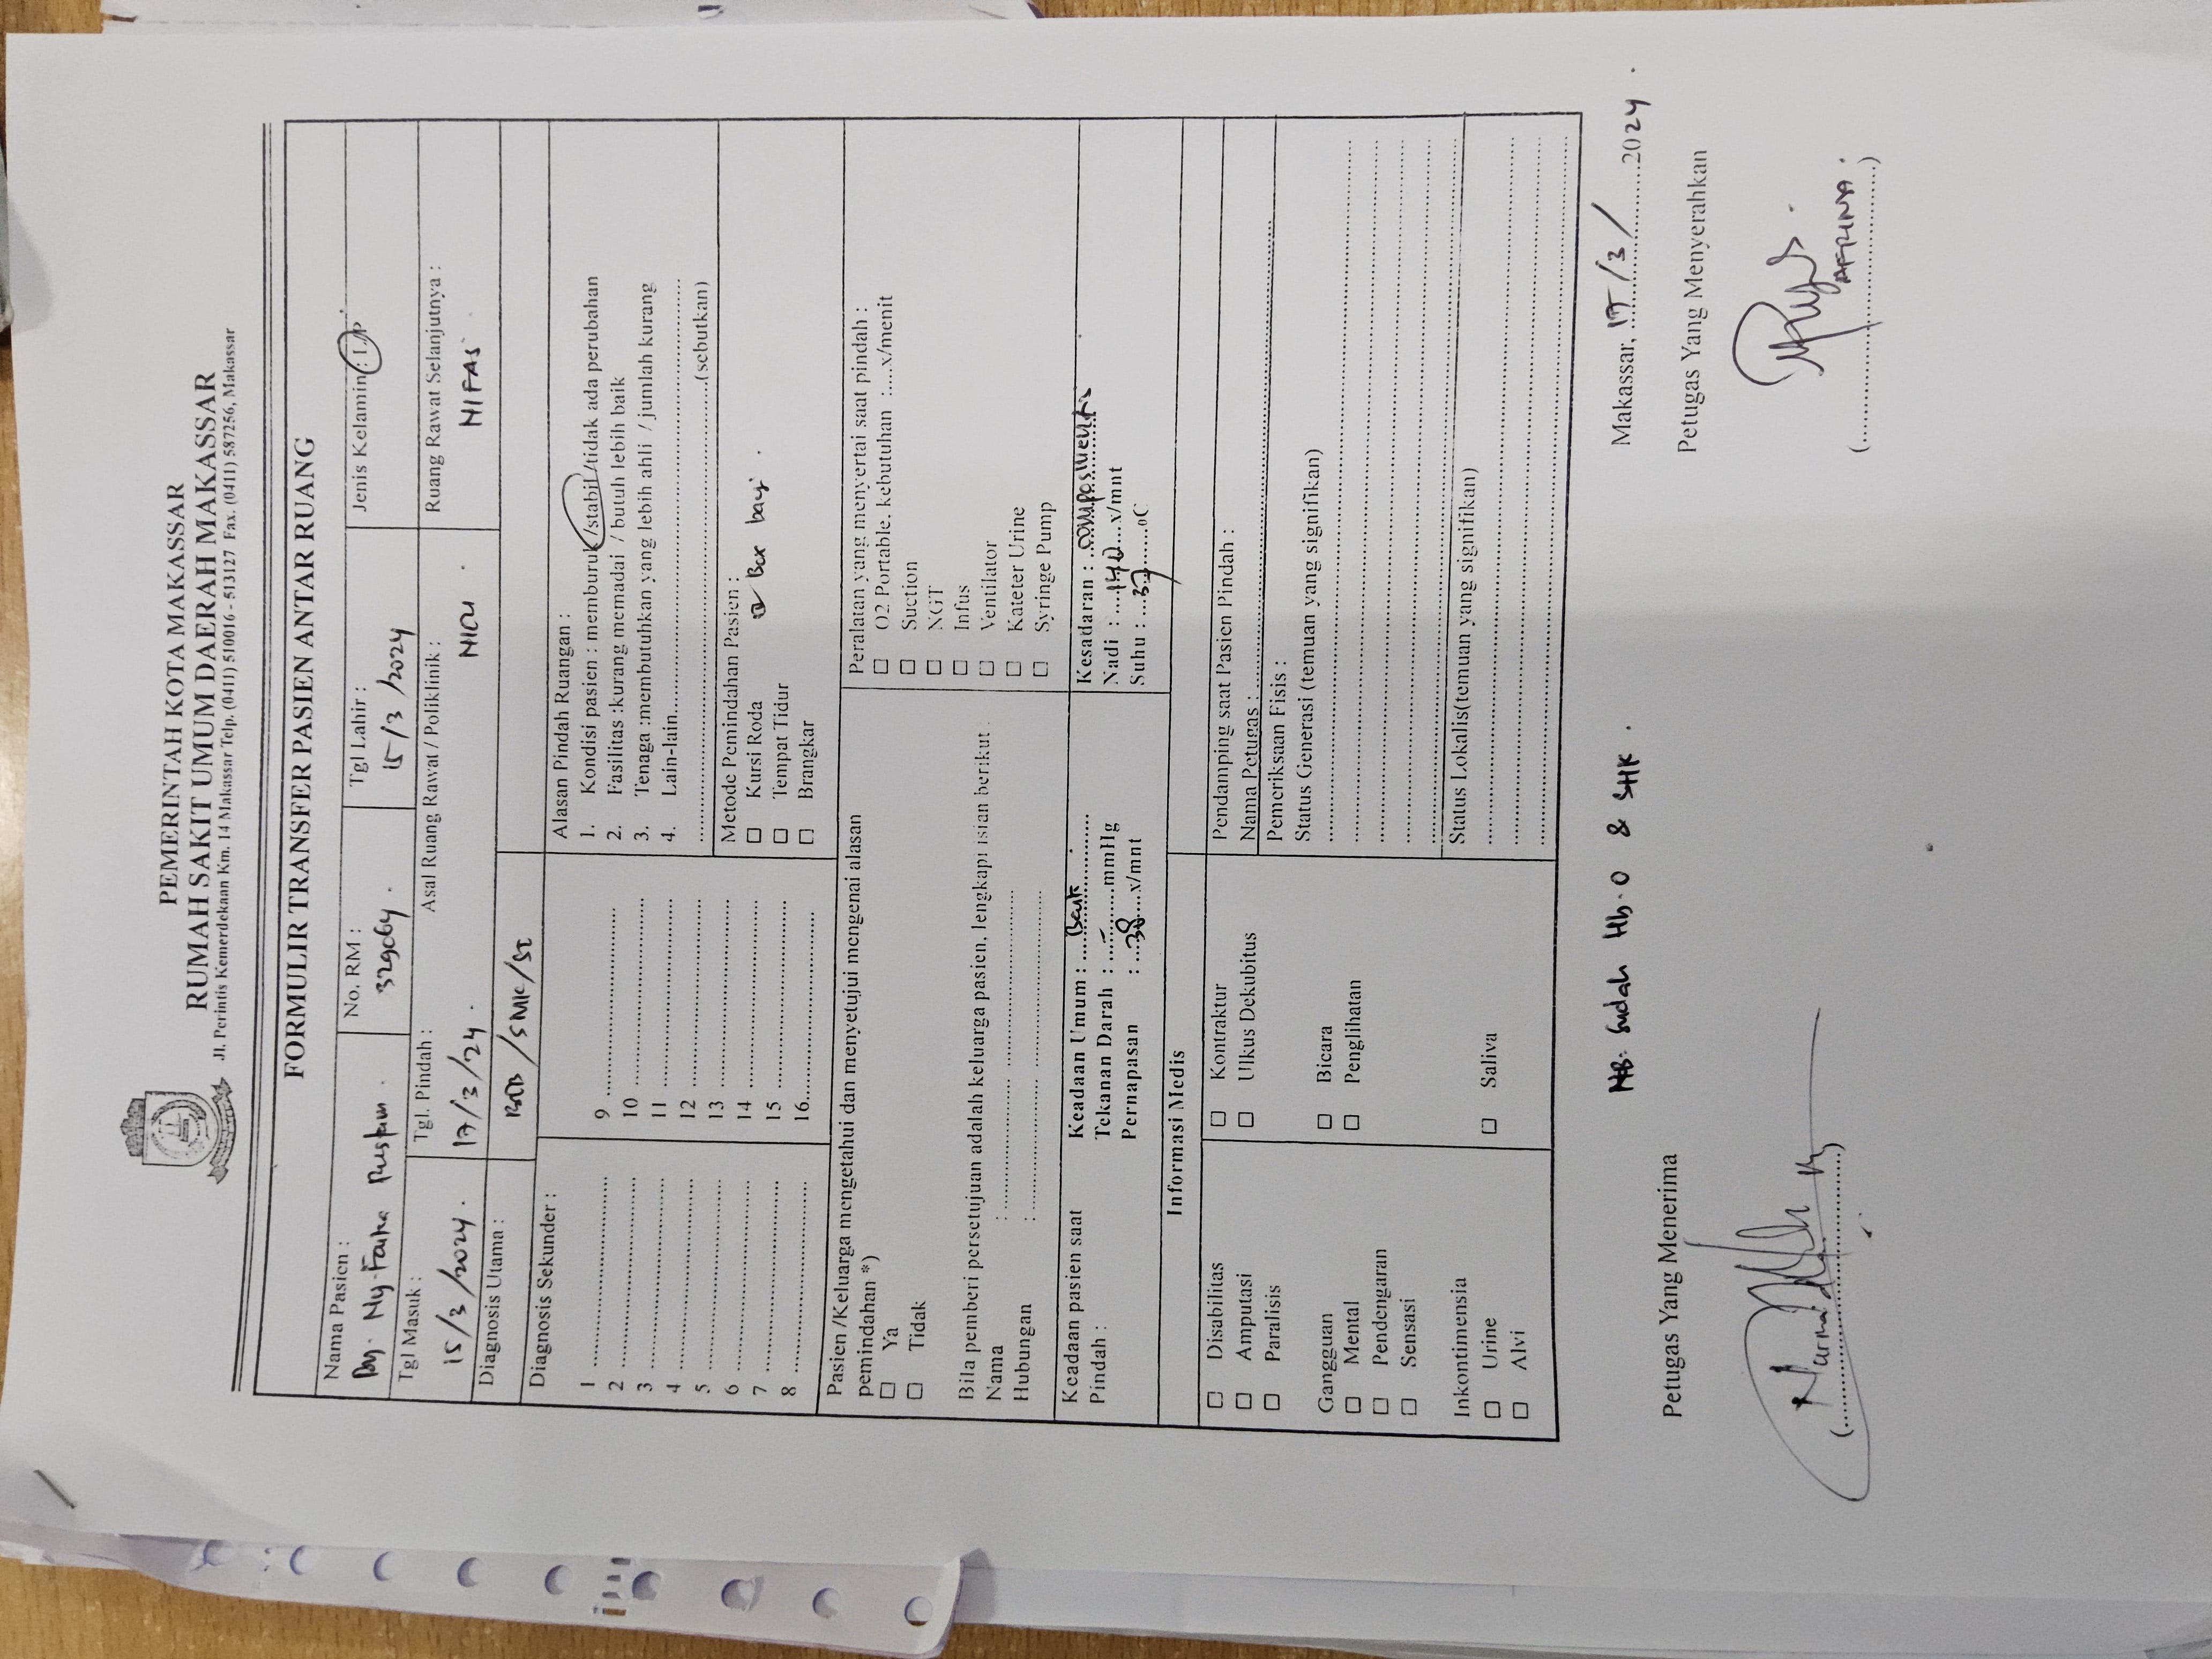 PEMERINTAH KOTA MAKASSAR
RUMAH SAKIT UMUM DAERAH MAKASSAR
Jl. Perintis Kemerdekaan Km. 14 Makassar Telp. (0411) 510016 - 513127 Fax. (0411) 587256, Makassar
FORMULIR TRANSFER PASIEN ANTAR RUANG
Nama Pasien :
By. Ny.
No. RM :
329064 .
Tgl Lahir :
15/3 /2024
Jenis Kelamin : L/P
Tgl Masuk :
15/3 /2024 .
Tgl. Pindah :
17/3/24 .
Asal Ruang Rawat / Poliklinik :
NICU
Ruang Rawat Selanjutnya :
NIFAS
Diagnosis Utama :
/SMK/
Diagnosis Sekunder :
1 ..............................
2 ..............................
3 ..............................
4 ..............................
5 ..............................
6 ..............................
7 ..............................
8 ..............................
9 ..............................
10 ..............................
11 ..............................
12 ..............................
13 ..............................
14 ..............................
15 ..............................
16..............................
Alasan Pindah Ruangan :
1. Kondisi pasien : memburuk /stabil /tidak ada perubahan
2. Fasilitas :kurang memadai / butuh lebih baik
3. Tenaga :membutuhkan yang lebih ahli / jumlah kurang
4. Lain-lain..............................
..............................(sebutkan)
Metode Pemindahan Pasien :
☐ Kursi Roda ☑ Box bayi .
☐ Tempat Tidur
☐ Brangkar
Pasien /Keluarga mengetahui dan menyetujui mengenai alasan
pemindahan *)
☐ Ya
☐ Tidak
Bila pemberi persetujuan adalah keluarga pasien, lengkapi isian berikut :
Nama : ..............................
Hubungan : ..............................
Peralatan yang menyertai saat pindah :
☐ O2 Portable, kebutuhan :....x/menit
☐ Suction
☐ NGT
☐ Infus
☐ Ventilator
☐ Kateter Urine
☐ Syringe Pump
Keadaan pasien saat
Pindah :
Keadaan Umum : ....Baik....
Tekanan Darah : ....-....mmHg
Pernapasan : ...38....x/mnt
Kesadaran : composmentis
Nadi : ....140...x/mnt
Suhu : ...37......oC
Informasi Medis
☐ Disabilitas
☐ Amputasi
☐ Paralisis
☐ Kontraktur
☐ Ulkus Dekubitus
Gangguan
☐ Mental
☐ Pendengaran
☐ Sensasi
☐ Bicara
☐ Penglihatan
Inkontimensia
☐ Urine
☐ Alvi
☐ Saliva
Pendamping saat Pasien Pindah :
Nama Petugas : ..............................
Pemeriksaan Fisis :
Status Generasi (temuan yang signifikan)
Status Lokalis(temuan yang signifikan)
NB: Sudah Hb.0 & SHK .
Makassar, 17 /3 / 2024 .
Petugas Yang Menerima
Petugas Yang Menyerahkan
(..............................)
AFRINA
(..............................)